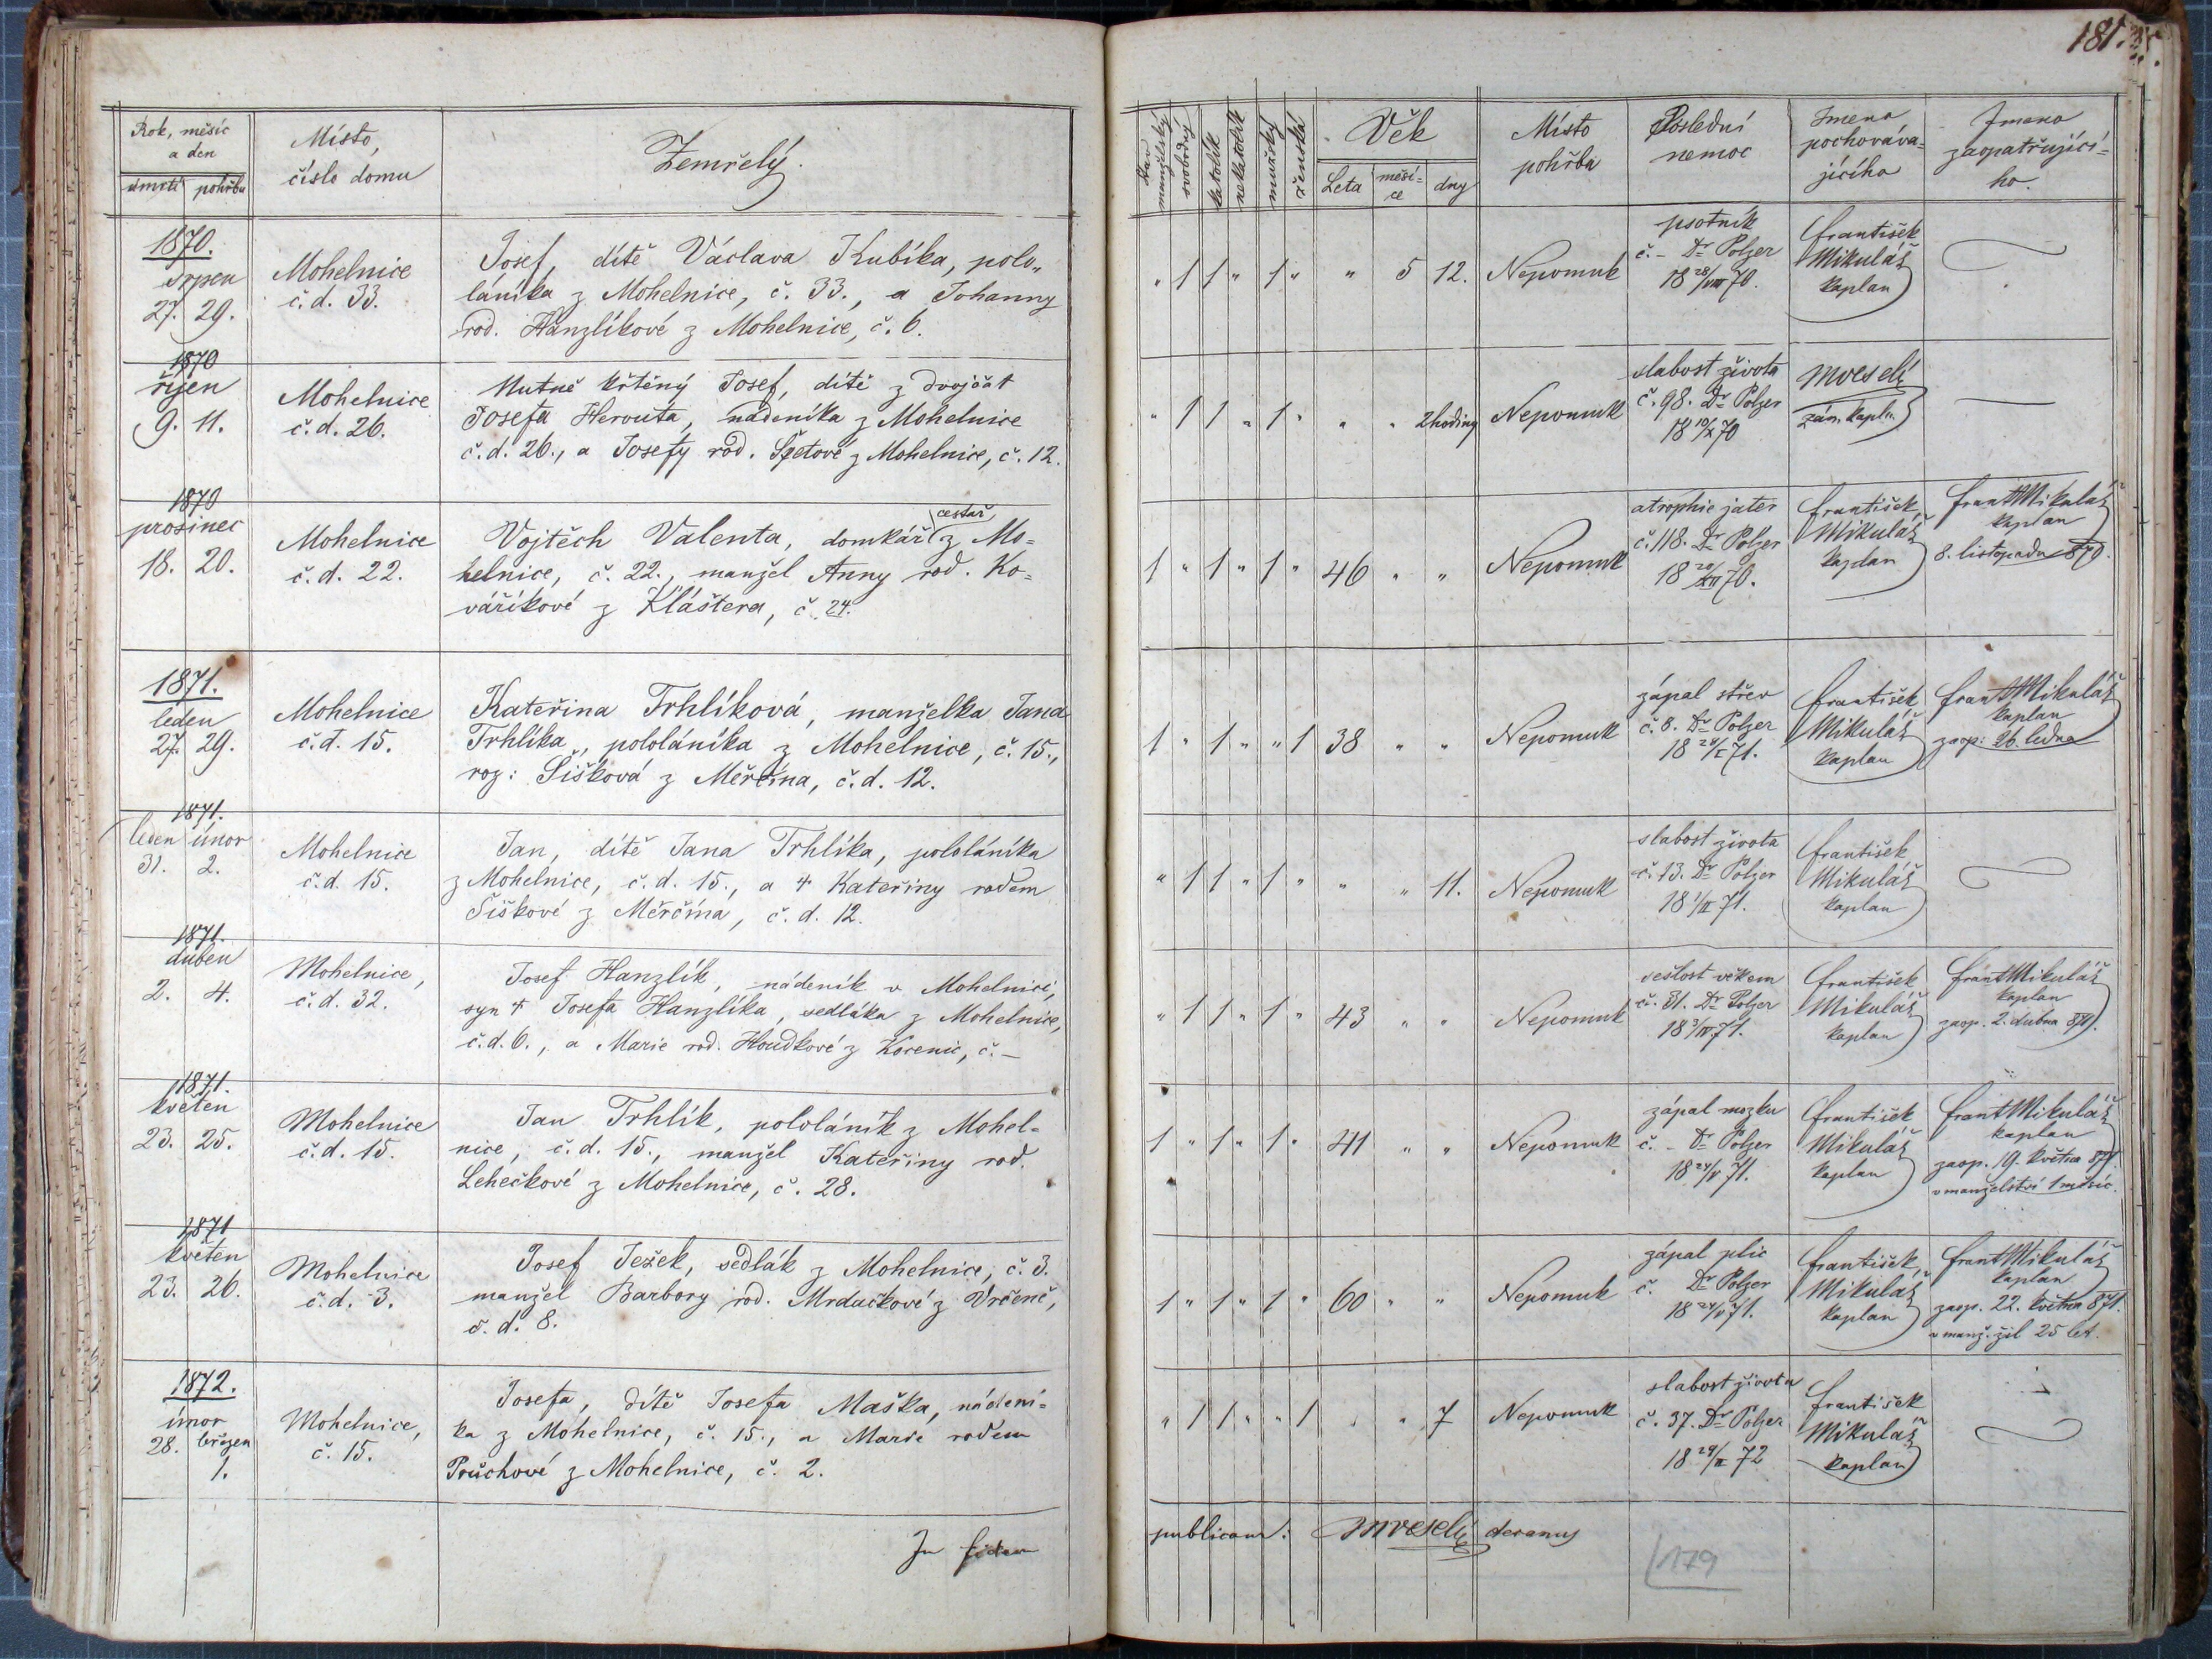 181.
Rok, měsíc
a den
úmrtí pohřbu
Místo,
číslo domu
Zemřelý.
Stav
manželský
svobodný
katolík
nekatolík
mužský
ženská
Věk
Leta měsí=
ce dny
Místo
pohřba
Poslední
nemoc
Jmeno
pochováva=
jícího
Jmeno
zaopatřujíci=
ho.
1870.
srpen
27. 29.
Mohelnice
č. d. 33.
Josef, dítě Václava Kubíka, polo„
láníka z Mohelnice, č. 33., a Johanny
rod. Hanzlíkové z Mohelnice, č. 6.
" 1 1 " 1 " " 5 12. Nepomuk
psotník
č. - Dr Polzer
18 28/VIII 70.
František
Mikuláš
kaplan
1870
říjen
9. 11.
Mohelnice
č. d. 26.
Nutně křtěný Josef, dítě z dvojčat
Josefa Herouta, nádeníka z Mohelnice
č. d. 26., a Josefy rod. Špetové z Mohelnice, č. 12.
" 1 1 " 1 " " " 2 hodiny Nepomuk
slabost života
č. 98. Dr Polzer
18 10/X 70
MVeselý
zám. kapln.
1870
prosinec
18. 20.
Mohelnice
č. d. 22.
cestář
Vojtěch Valenta, domkář z Mo=
helnice, č. 22., manžel Anny rod. Ko=
váříkové z Kláštera, č. 24.
1 " 1 " 1 " 46 " " Nepomuk
atrophie jater
č. 118. Dr Polzer
18 20/XII 70.
František
Mikuláš
kaplan
Frant Mikuláš
kaplan
8. listopadu 870.
1871.
leden
27. 29.
Mohelnice
č. d. 15.
Kateřina Trhlíková, manželka Jana
Trhlíka, pololáníka z Mohelnice, č. 15.,
roz: Šišková z Měrčína, č. d. 12.
1 " 1 " " 1 38 " " Nepomuk
zápal střev
č. 8. Dr Polzer
18 28/I 71.
František
Mikuláš
kaplan
Frant Mikuláš
kaplan
zaop: 26. ledna
1871.
leden únor
31. 2.
Mohelnice
č. d. 15.
Jan, dítě Jana Trhlíka, pololáníka
z Mohelnice, č. d. 15., a † Kateřiny rodem
Šiškové z Měrčína, č. d. 12.
" 1 1 " 1 " " " 11. Nepomuk
slabost života
č. 13. Dr Polzer
18 1/II 71.
František
Mikuláš
kaplan
1871.
duben
2. 4.
Mohelnice,
č. d. 32.
Josef Hanzlík, nádeník v Mohelnici,
syn † Josefa Hanzlíka, sedláka z Mohelnice,
č. d. 6., a Marie rod. Houdkové z Kocenic, č. –
" 1 1 " 1 " 43 " " Nepomuk
sešlost věkem
č. 31. Dr Polzer
18 3/IV 71.
František
Mikuláš
kaplan
Frant Mikuláš
kaplan
zaop. 2. dubna 871.
1871.
květen
23. 25.
Mohelnice
č. d. 15.
Jan Trhlík, pololáník z Mohel=
nice, č. d. 15., manžel Kateřiny rod.
Lehečkové z Mohelnice, č. 28.
1 " 1 " 1 " 41 " " Nepomuk
zápal mozku
č. - Dr Polzer
18 24/V 71.
František
Mikuláš
kaplan
Frant Mikuláš
kaplan
zaop. 19. května 871
v manželství 1 měsíc.
1871
květen
23. 26.
Mohelnice
č. d. 3.
Josef Ježek, sedlák z Mohelnice, č. 3.
manžel Barbory rod. Mrdačkové z Vrčeně,
č. d. 8.
1 " 1 " 1 " 60 " " Nepomuk
zápal plic
č. Dr Polzer
18 24/V 71.
František
Mikuláš
kaplan
Frant Mikuláš
kaplan
zaop. 22. května 871.
v manž. žil 25 let.
1872.
únor
28. březen
1.
Mohelnice,
č. 15.
Josefa, dítě Josefa Maška, nádení=
ka z Mohelnice, č. 15., a Marie rodem
Průchové z Mohelnice, č. 2.
" 1 1 " " 1 " " 7 Nepomuk
slabost života
č. 37. Dr Polzer
18 29/II 72
František
Mikuláš
kaplan
In fidem
publicam: MVeselý decanus
179